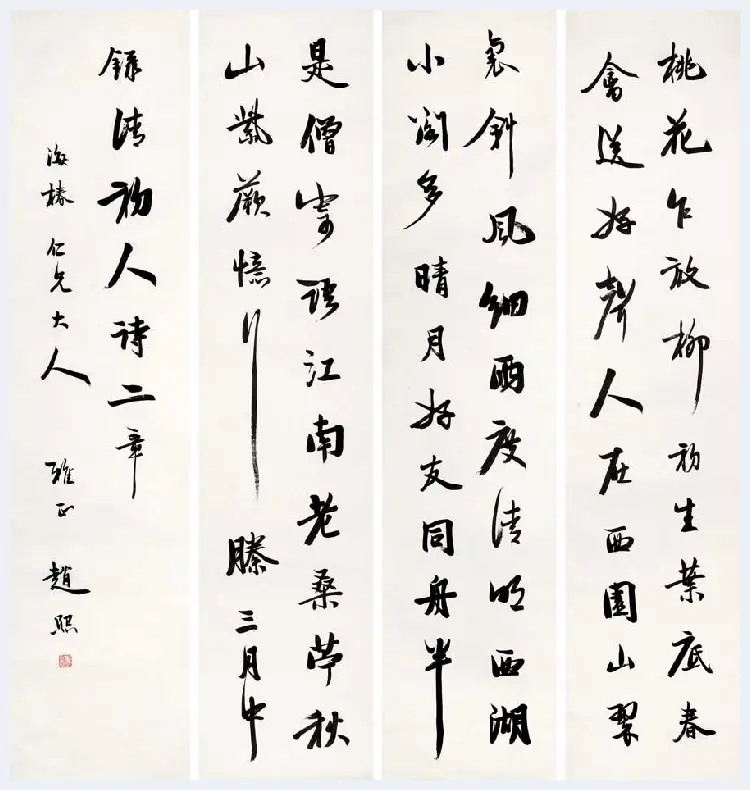 桃花乍放柳初生葉底春
禽送好聲人在西園山翠
裏斜風細雨度清明西湖
小閣多晴月好友同舟半
是僧寄語江南老桑苧秋
山紫蕨憶行縢三月中
錄清初人詩二章
海椿仁兄大人 雅正 趙熙